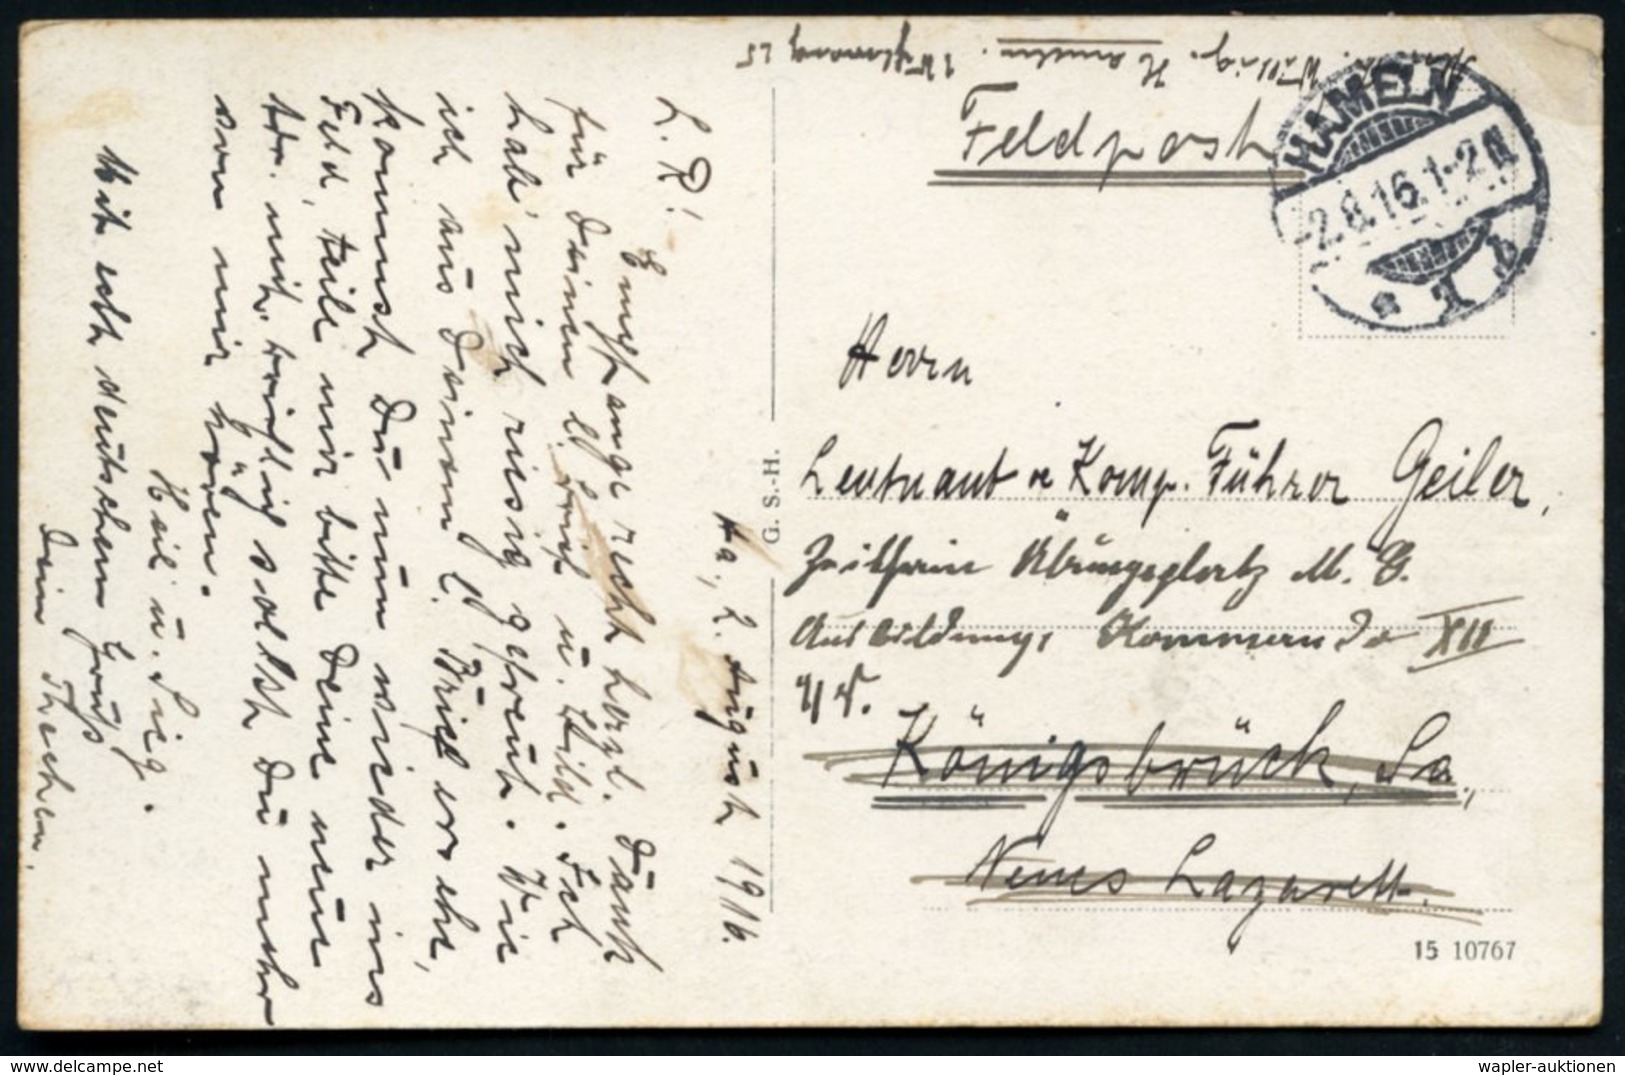 Ha., 2. August 1916.
L. R!
Empfange recht herzl. Dank
für Deinen lb. Brief u. Bild. Ich
hab' mich riesig gefreut. Wie
ich aus Deinem lb. Brief ersehe,
kommst Du nun wieder ins
Feld, teile mir bitte Deine neue
mit, solltest Du mehr
von mir hören.
Heil u. Sieg.
Mit echt deutschem Gruß
Dein Theochen.
Hameln.
Feldpost
HAMELN
2.8.16.1-2N
* 1 b
Herrn
Leutnant u Komp. Führer Geiler,
Zeithain Übungsplatz M. G.
Ausbildungs Kommando XII
Königsbrück, Sa.,
Neues Lazarett.
G. S.-H.
15 10767
wapler-auktionen